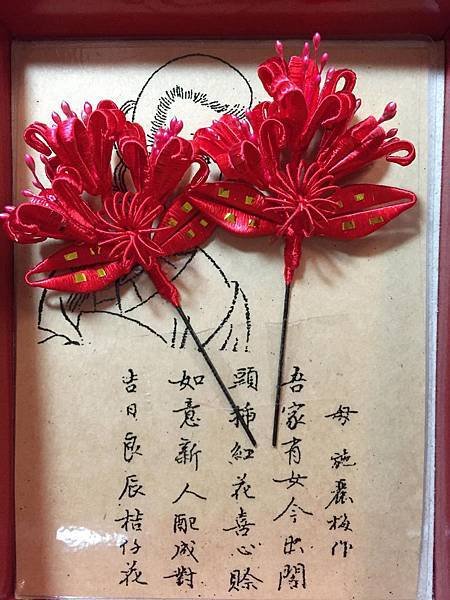 母施麗梅作
吾家有女今出閣
頭插紅花喜心賒
如意新人配成對
吉日良辰桔仔花